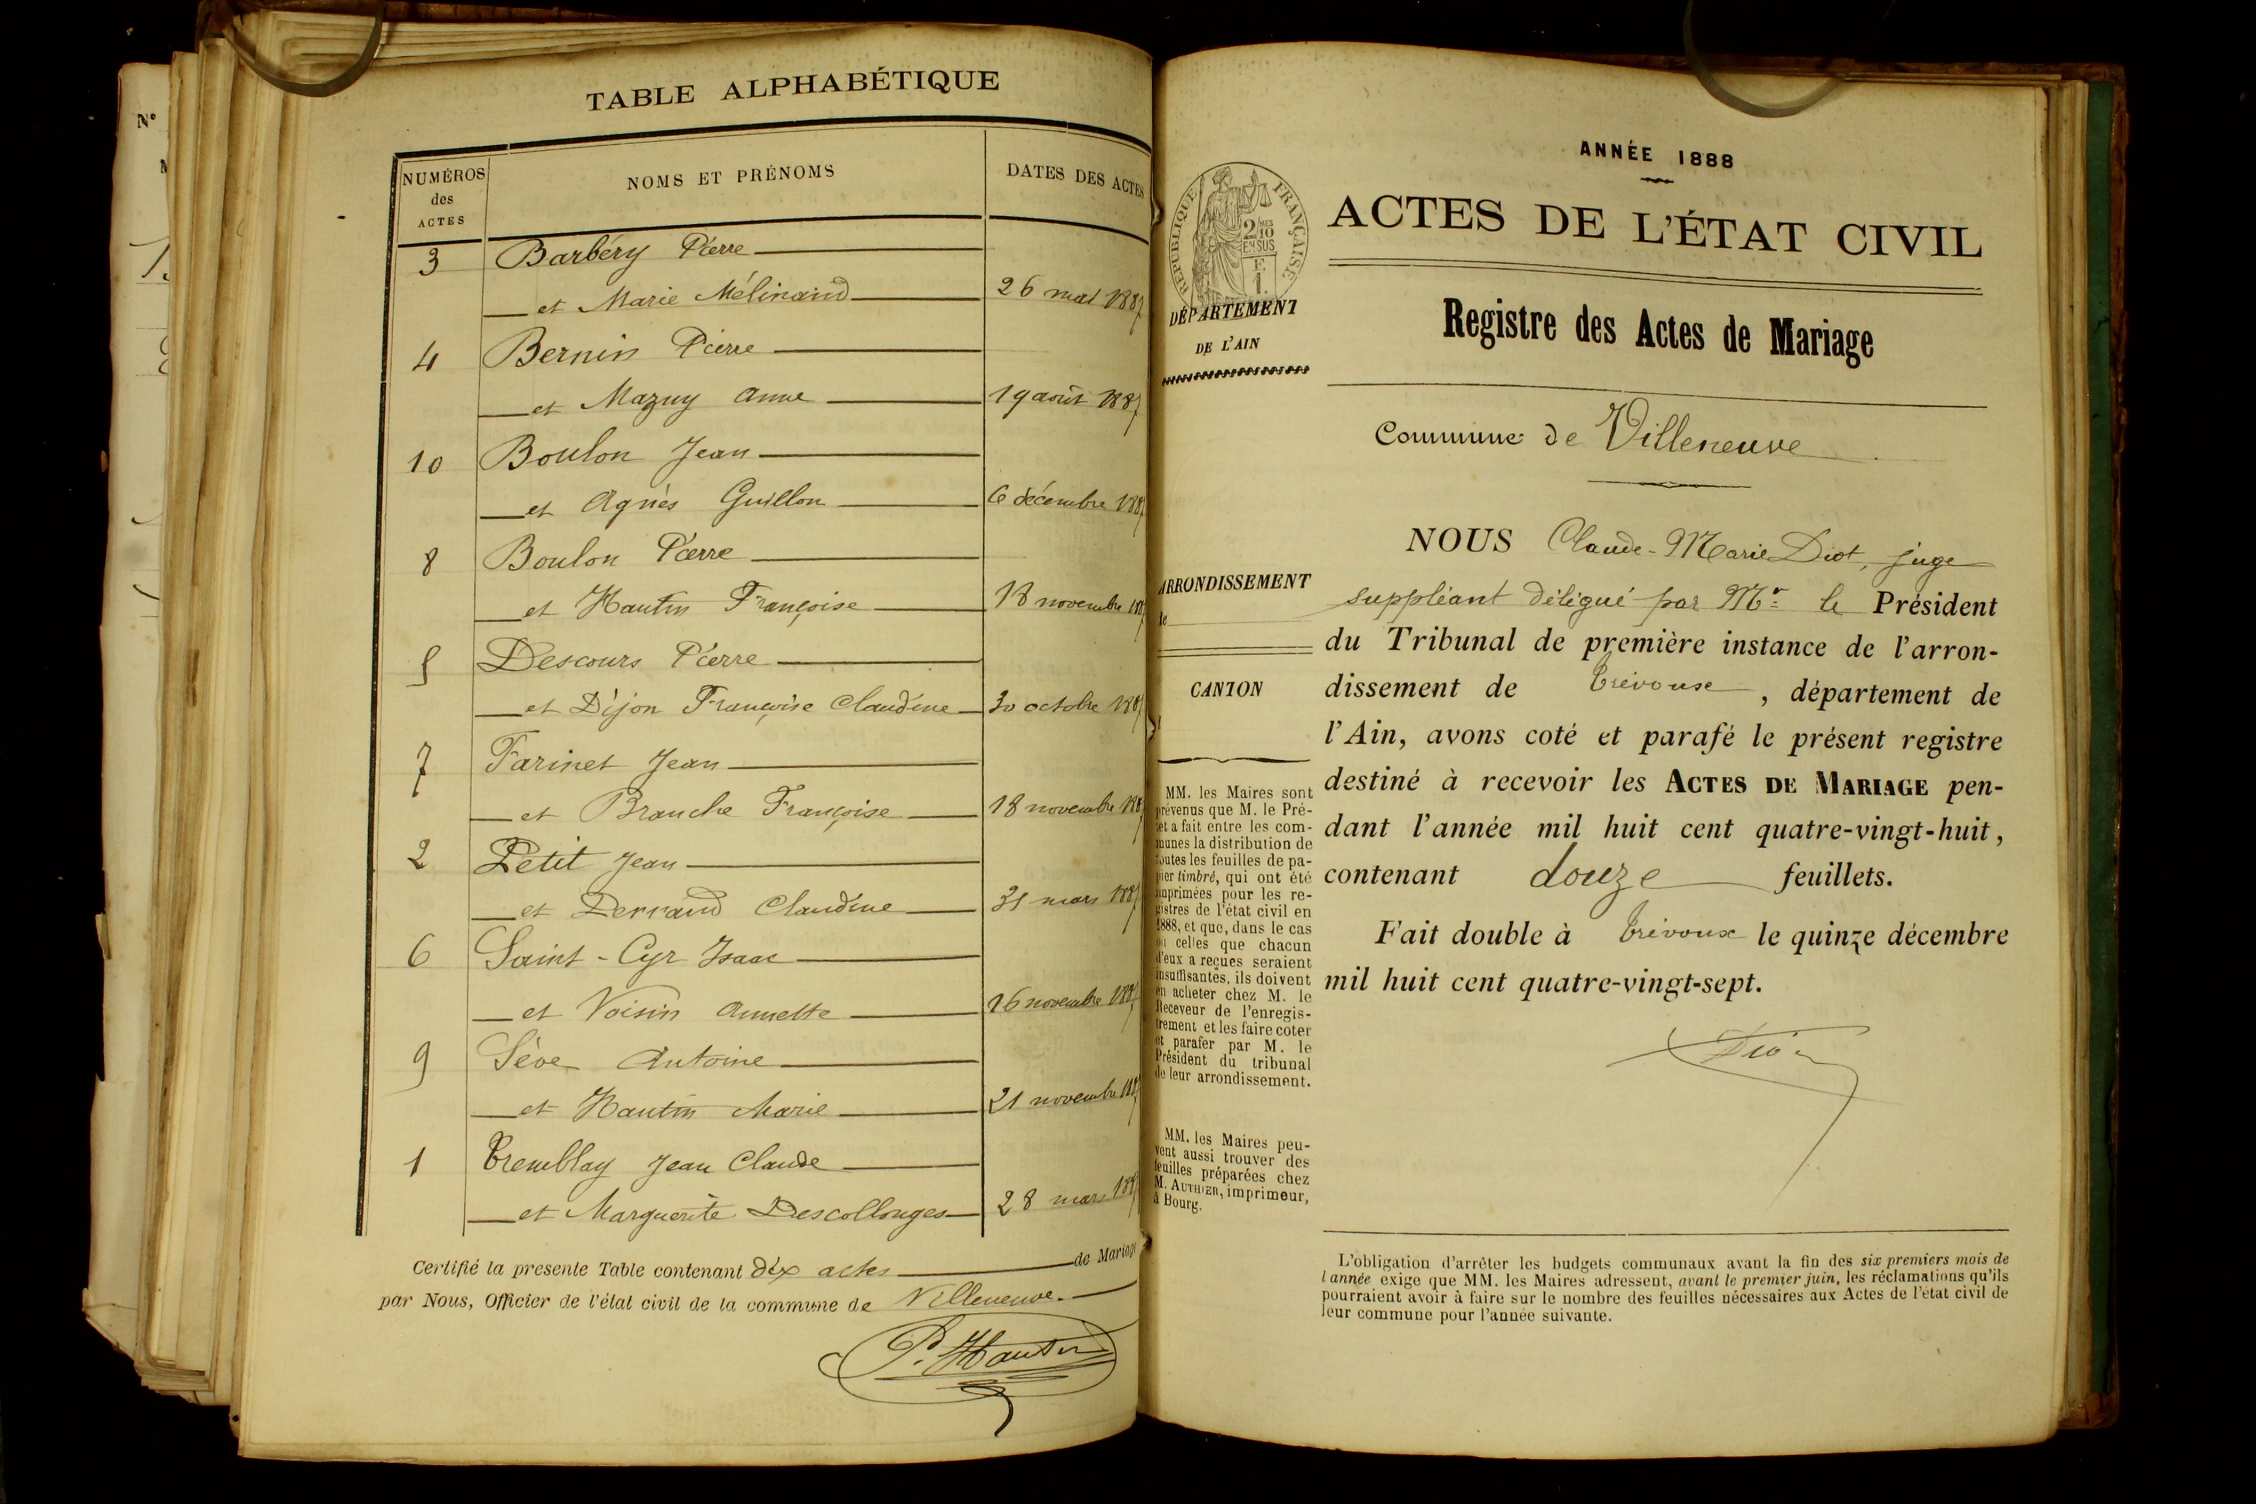 TABLE ALPHABÉTIQUE
NUMÉROS des ACTES
NOMS ET PRÉNOMS
DATES DES ACTES
3 Barbéry Pierre
et Marie Mélinand 26 mai 1887
4 Bernin Pierre
et Mazuy Anne 19 août 1887
10 Boulon Jean
et Agnès Guillon 6 décembre 1887
8 Boulon Pierre
et Hautin Françoise 18 novembre 1887
5 Descours Pierre
et Dijon Françoise Claudine 30 octobre 1887
7 Farinet Jean
et Branche Françoise 18 novembre 1887
2 Petit Jean
et Derrand Claudine 31 mars 1887
6 Saint-Cyr Isaac
et Voisin Annette 16 novembre 1887
9 Sève Antoine
et Hautin Marie 21 novembre 1887
1 Tremblay Jean Claude
et Marguerite Descollonges 28 mars 1887
Certifié la presente Table contenant dix actes de Mariage
par Nous, Officier de l'état civil de la commune de Villeneuve.
P. Hautin
N°
RÉPUBLIQUE FRANÇAISE
2 10 EN SUS
E 1.
DÉPARTEMENT
DE L'AIN
ARRONDISSEMENT
de
CANTON
MM. les Maires sont
prévenus que M. le Pré-
fet a fait entre les com-
munes la distribution de
toutes les feuilles de pa-
pier timbré, qui ont été
imprimées pour les re-
gistres de l'état civil en
1888, et que, dans le cas
où celles que chacun
d'eux a reçues seraient
insuffisantes, ils doivent
en acheter chez M. le
Receveur de l'enregis-
trement et les faire coter
et parafer par M. le
Président du tribunal
de leur arrondissement.
MM. les Maires peu-
vent aussi trouver des
feuilles préparées chez
M. AUTHIER, imprimeur,
à Bourg.
ANNÉE 1888
ACTES DE L'ÉTAT CIVIL
Registre des Actes de Mariage
Commune de Villeneuve
NOUS Claude-Marie Diot, juge
suppléant délégué par Mr le Président
du Tribunal de première instance de l'arron-
dissement de Trévoux, département de
l'Ain, avons coté et parafé le présent registre
destiné à recevoir les ACTES DE MARIAGE pen-
dant l'année mil huit cent quatre-vingt-huit,
contenant douze feuillets.
Fait double à Trévoux le quinze décembre
mil huit cent quatre-vingt-sept.
Diot
L'obligation d'arrêter les budgets communaux avant la fin des six premiers mois de
l'année exige que MM. les Maires adressent, avant le premier juin, les réclamations qu'ils
pourraient avoir à faire sur le nombre des feuilles nécessaires aux Actes de l'état civil de
leur commune pour l'année suivante.